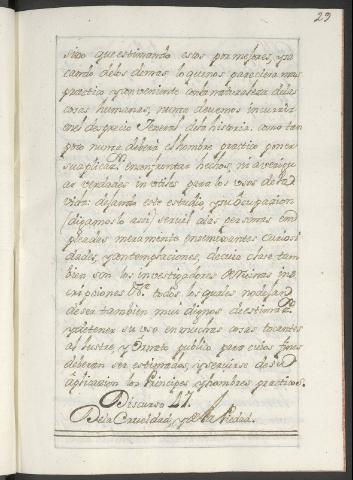 29
sino que estimando esos por mejores, y sa
cando de los demas lo que nos pareciera mas
practico y conveniente con la naturaleza de las
cosas humanas, nunca devemos incurrir
en el desprecio General de la historia. como tam
poco nunca deberá el hombre practico poner
su aplicaz.on en confrontar hechos, ni averigu
ar verdades inutiles para los usos de la
vida: dejando este estudio, y su ocupacion
(digamoslo assi) servil a las personas em
pleadas meramente en semejantes curiosi
dades, y contemplaciones, de cuia clase tam
bien son los investigadores de Ruinas ins
cripciones &.ª todos los quales no dejan
de ser tambien mui dignos de estima
y de tener su uso en muchas cosas tocantes
al lustre, y Ornato publico para cuios fines
deberan ser estimados, y servirse de su
aplicacion los Principes y hombres practicos.
Discurso 47.
De la Crueldad, y de la Piedad.